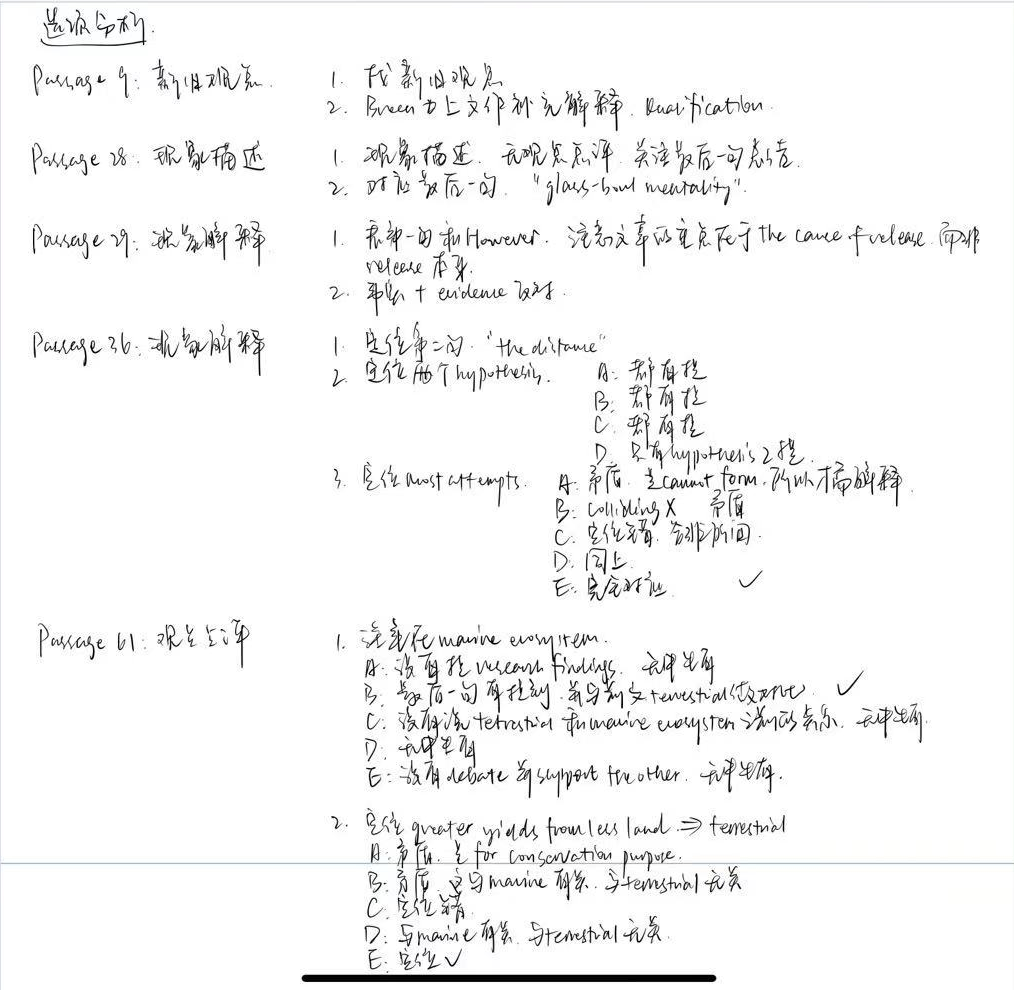 选项分析.
Passage 9: 新旧观点. 1. 找新旧观点
2. Breen 为上文作补充解释. Qualification.
Passage 28: 现象描述 1. 现象描述. 无观点点评. 关注最后一句总结.
2. 对应最后一句. "glass-bowl mentality".
Passage 29: 现象解释 1. 第一句和However. 注意文章的重点在于the cause of release. 而非
release 本身.
2. + evidence 反对.
Passage 36: 现象解释 1. 定位第二句. "the distance"
2. 定位两个hypothesis. A: 都有提
B: 都有提
C. 都有提
D. 只有hypothesis 2提.
3. 定位most attempts. A: 矛盾. 是cannot form. 所以才需解释.
B: colliding X 矛盾
C. 定位错. 答非所问.
D: 同上.
E: 完全对应 ✓
Passage 61: 观点点评 1. 注意在marine ecosystem.
A: 没有提research findings. 无中生有
B. 最后一句有提到. 并与前文terrestrial做对比. ✓
C: 没有说tetrestrial 和marine ecosystem 之间的关系. 无中生有.
D: 无中生有
E: 没有debate 并support the other. 无中生有.
2. 定位greater yields from less land. ⇒ terrestrial
A: 矛盾. 是for conservation purpose.
B: 矛盾. 是与marine 有关. 与terrestrial 无关
C. 定位错.
D: 与marine 有关. 与terrestrial 无关.
E: 定位 ✓